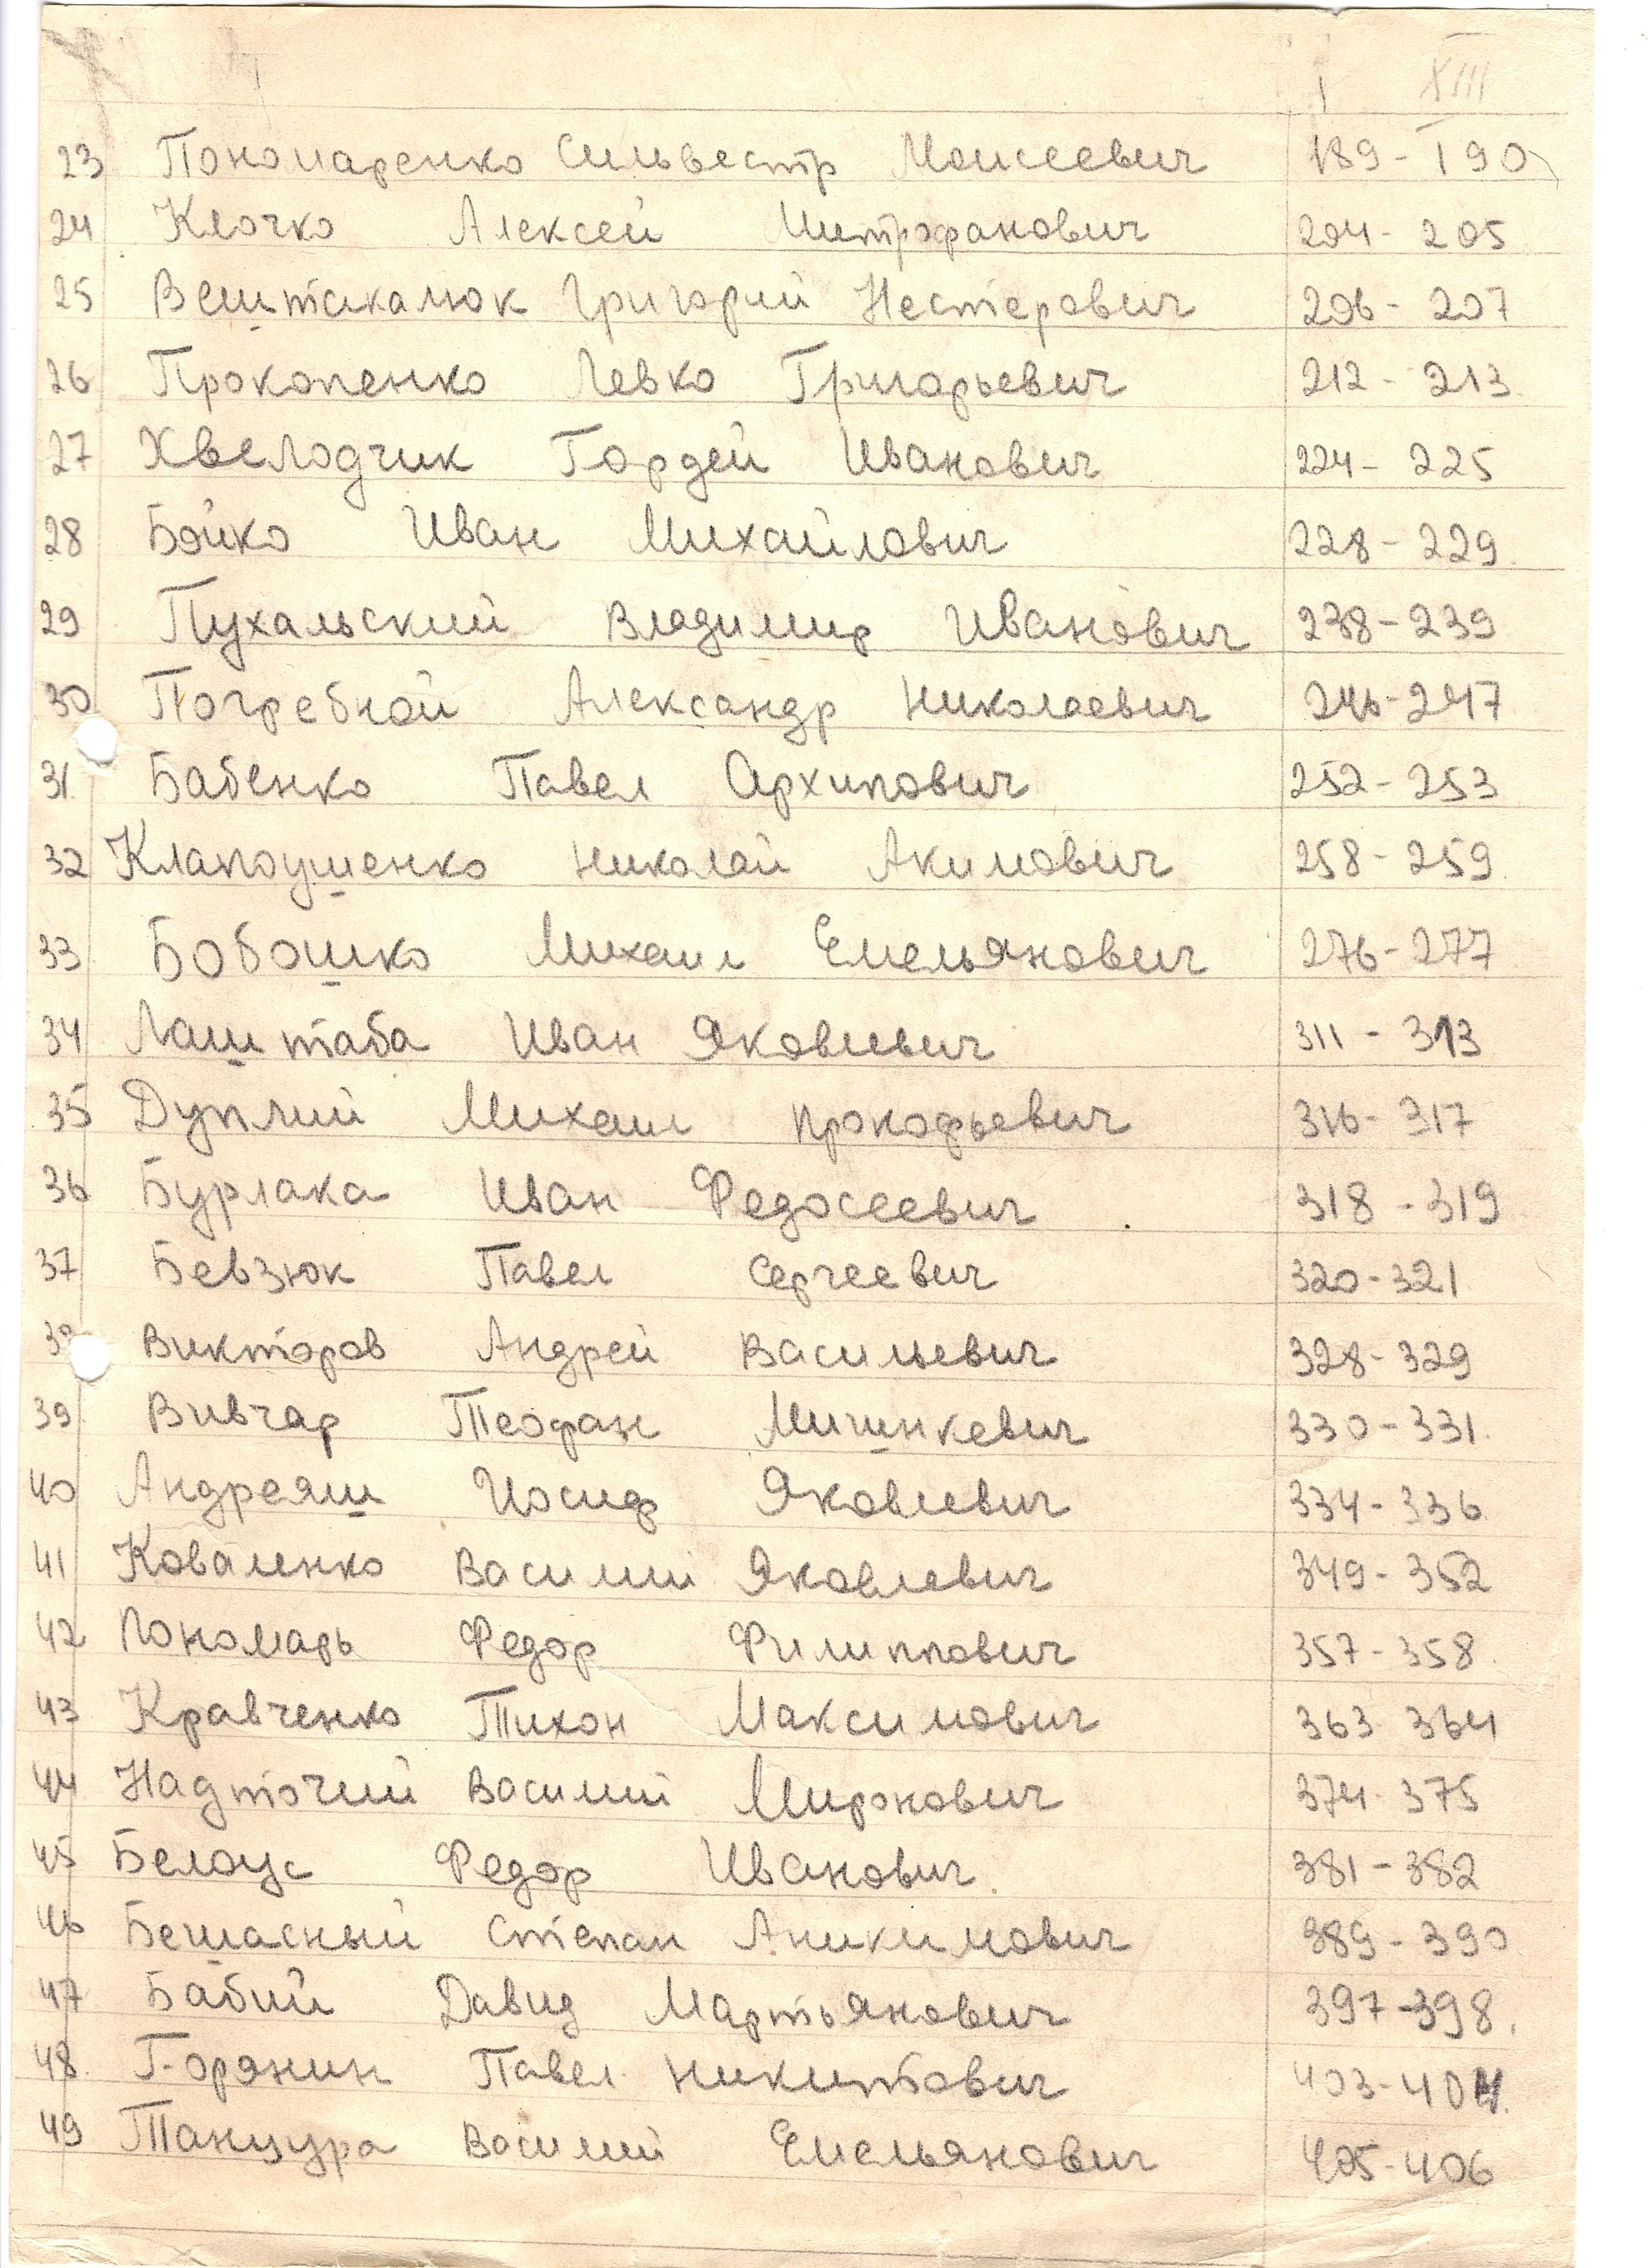 I XIII
23 Пономаренко Сильвестр Моисеевич 189-190
24 Клочко Алексей Митрофанович 204-205
25 Вештакалюк Григорий Нестерович 206-207
26 Прокопенко Левко Григорьевич 212-213
27 Хвелодчик Гордей Иванович 224-225
28 Бойко Иван Михайлович 228-229
29 Пухальский Владимир Иванович 238-239
30 Погребной Александр Николаевич 246-247
31 Бабенко Павел Архипович 252-253
32 Клапоушенко Николай Акимович 258-259
33 Бобошко Михаил Емельянович 276-277
34 Лаштаба Иван Яковлевич 311-313
35 Дуплий Михаил Прокофьевич 316-317
36 Бурлака Иван Федосеевич 318-319
37 Бевзюк Павел Сергеевич 320-321
38 Викторов Андрей Васильевич 328-329
39 Вивчар Теофан Мишнкевич 330-331
40 Андреяш Иосиф Яковлевич 334-336
41 Коваленко Василий Яковлевич 349-352
42 Пономарь Федор Филиппович 357-358
43 Кравченко Тихон Максимович 363 364
44 Надточий Василий Миронович 374-375
45 Белоус Федор Иванович 381-382
46 Бешасный Степан Аникимович 389-390
47 Бабий Давид Мартьянович 397-398
48 Горянин Павел Никитович 403-404
49 Танцура Василий Емельянович 405-406